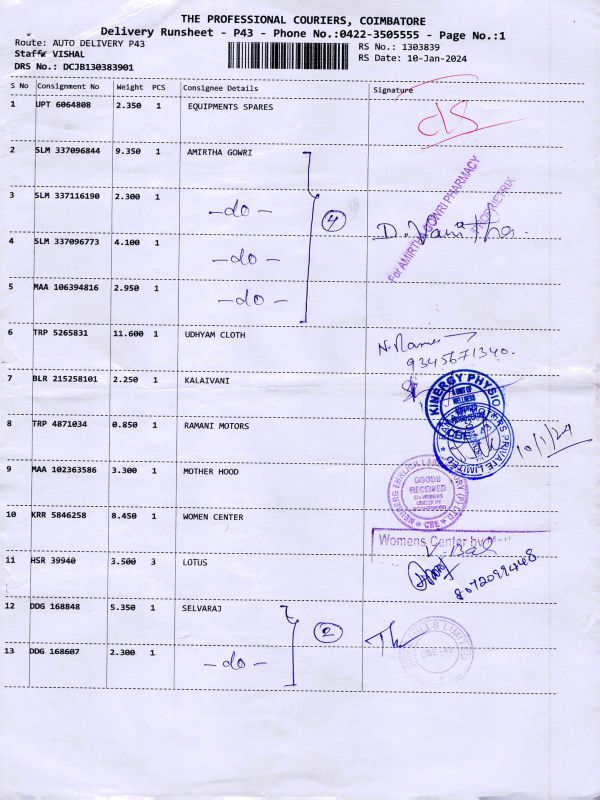 THE PROFESSIONAL COURIERS, COIMBATORE
Delivery Runsheet - P43 - Phone No.:0422-3505555 - Page No.:1
Route: AUTO DELIVERY P43
RS No.: 1303839
Staff: VISHAL
RS Date: 10-Jan-2024
DRS No.: DCJB130383901
S No Consignment No Weight PCS Consignee Details Signature
1 UPT 6064808 2.350 1 EQUIPMENTS SPARES
2 SLM 337096844 9.350 1 AMIRTHA GOWRI
3 SLM 337116190 2.300 1 -do-
4
For AMIRTHA GOWRI PHARMACY
PROPRIETRIX
4 SLM 337096773 4.100 1 -do-
5 MAA 106394816 2.950 1 -do-
6 TRP 5265831 11.600 1 UDHYAM CLOTH
9345671340.
7 BLR 215258101 2.250 1 KALAIVANI
KINERGY PHYSIO
A UNIT OF
WELLNESS
8 TRP 4871034 0.850 1 RAMANI MOTORS
PRIVATE LIMITED
10/1/24
9 MAA 102363586 3.300 1 MOTHER HOOD
GOODS
RECEIVED
CBE
10 KRR 5846258 8.450 1 WOMEN CENTER
Womens Center by
11 HSR 39940 3.500 3 LOTUS
8072099448
12 DDG 168848 5.350 1 SELVARAJ
2
MILLS LIMITED
CBE-43
13 DDG 168607 2.300 1 -do-